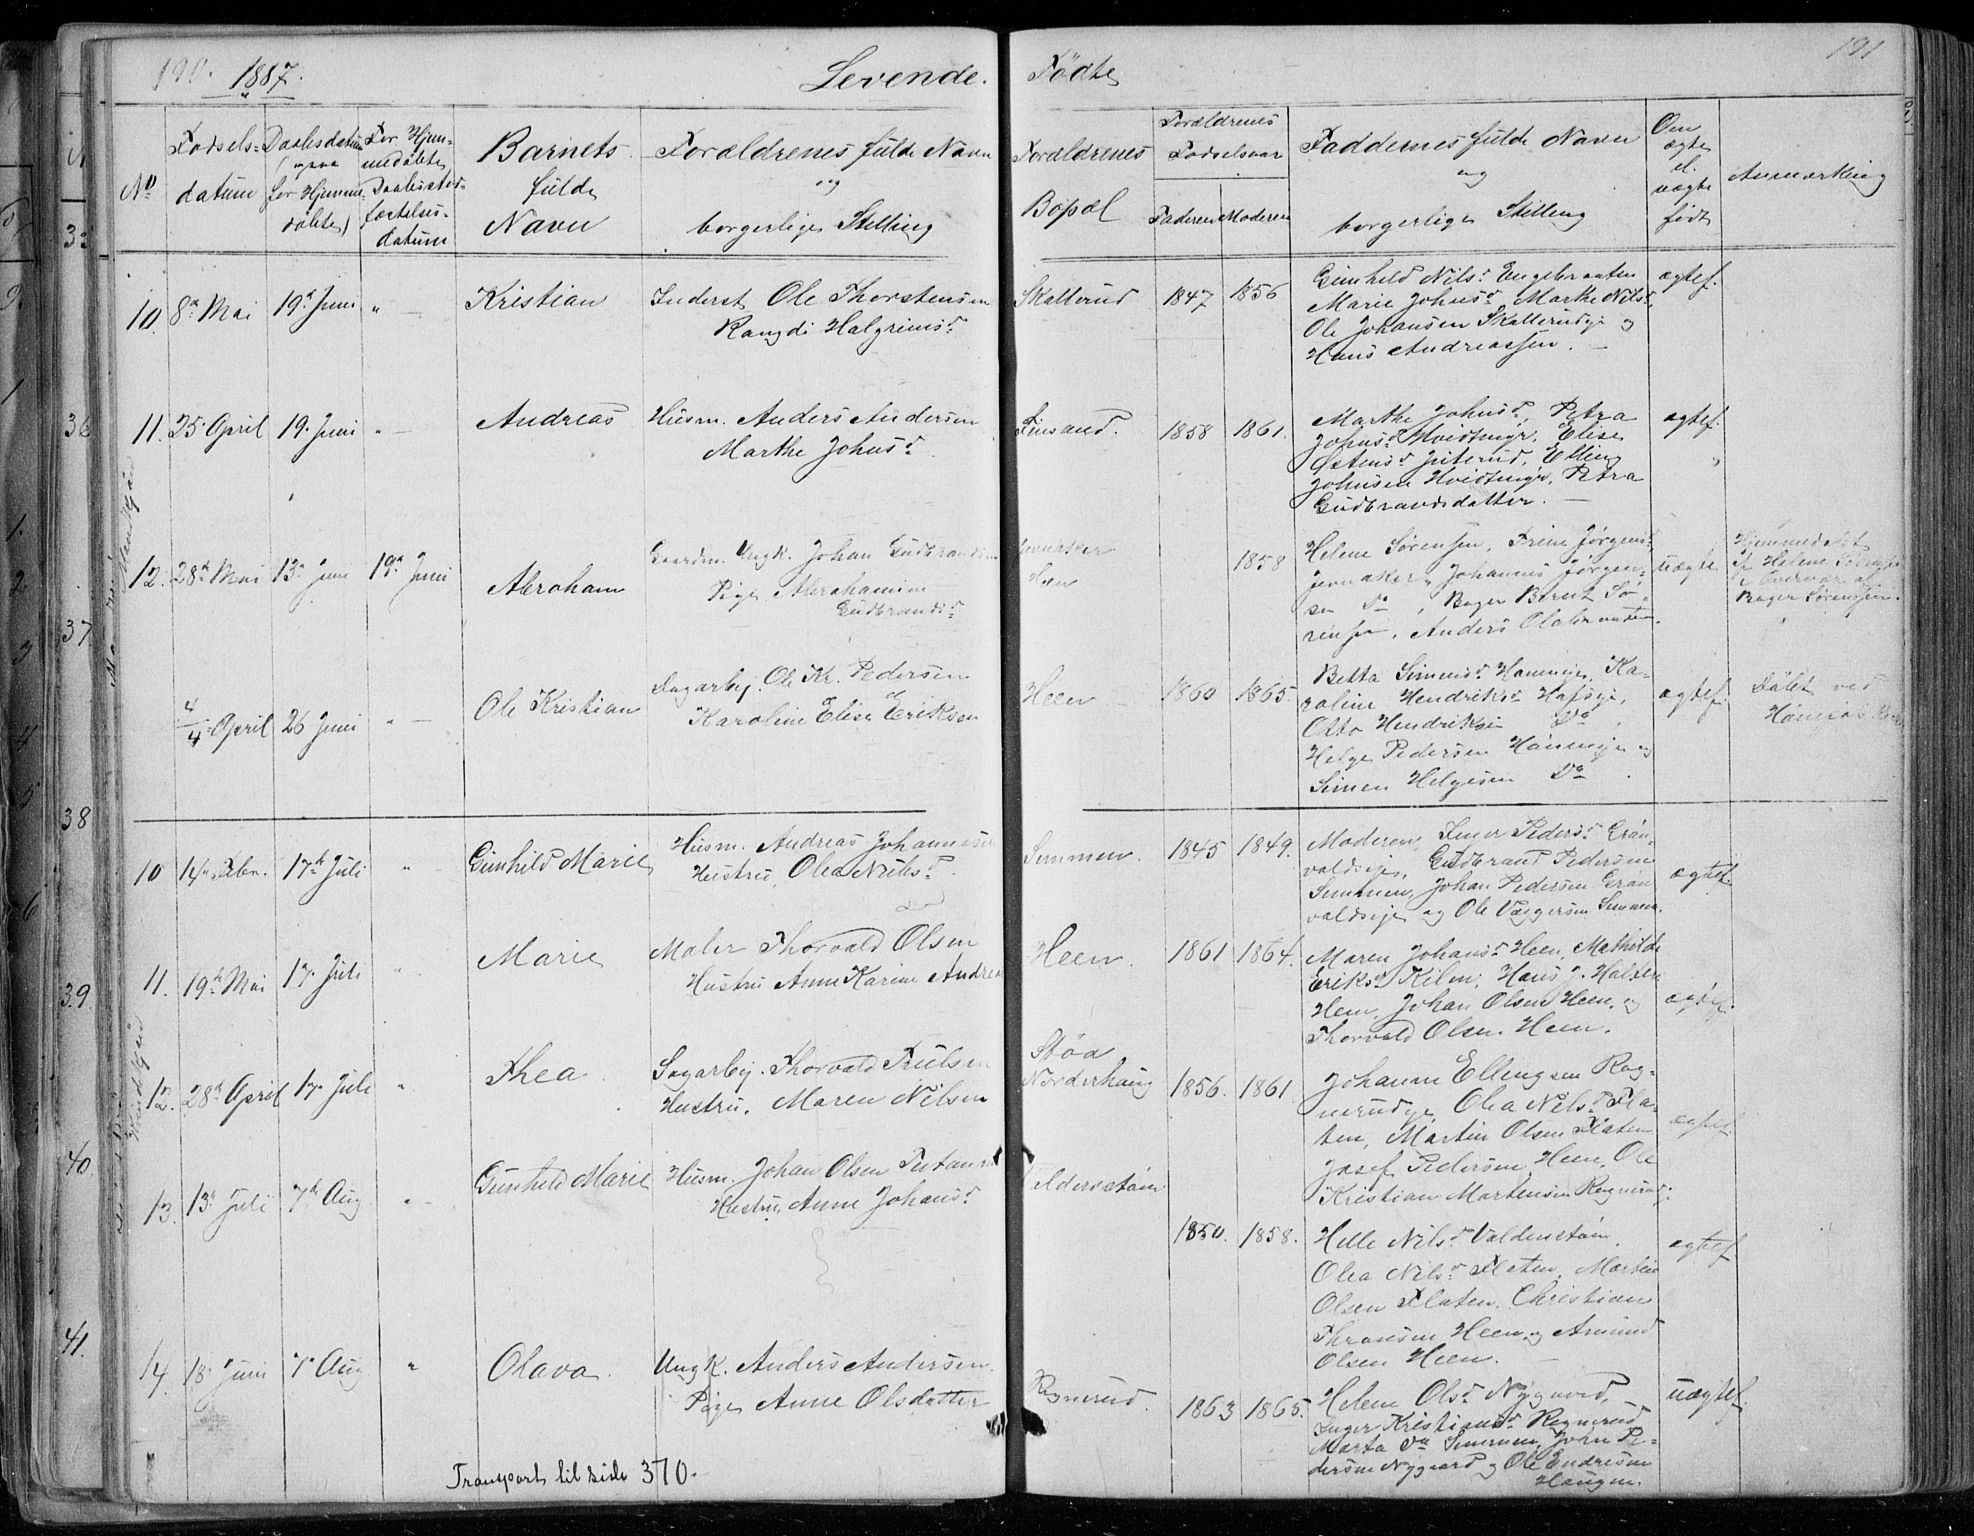 190. 1887. Levende. Fødte 191
No
Fødsels=
datum
Daabsdatum
(ogsaa
for Hjemme
døbte)
For Hjem-
medøbte
Daabsstad-
fæstelses-
datum
Barnets
fulde
Navn
Forældrenes fulde Navn
og
borgerlige Stilling
Forældrenes
Bopæl
Forældrenes
Fødselsaar
Faderen Moderen
Faddernes fulde Navn
og
borgerlige Stilling
Om
ægte
el.
uægte
født
Anmærkning
10. 8de Mai 19de Juni " Kristian
Inderst Ole Thorstensen
Rangdi Halgrimsd.
Skallerud 1847 1856
Gunhild Nilsd. Engebraaten
Marie Johnsd. Marthe Nilsd.
Ole Johansen Skallerudje og
Hans Andreassen. —
ægtef.
11. 25. April 19. Juni " Andreas
Husm. Anders Andersen
Marthe Johnsd.
Finsand. 1858 1861.
Marthe Johnsd, Petra
Johnsd. Hvidtingr, Elise
Østensd. , Elling
Johnsen Hvidtingr, Petra
Gudbrandsdatter. —
ægtef.
12. 28de Mai 13de Juni 19de Juni Abraham
Gaardm. Ungk. Johan Gudbrandsen
Pige Abrahamine
Gudbrandsd.
Jevnaker
Heen
1858
Helene Sørensen, Trine Jørgens
Jevnaker, Johannes Jørgen-
sen Do, Bager Bernt Sø-
rensen, Anders Olebraaten.
uægte
Hjemmedøbt
af Helene Sørensen
i Overvær af
Bager Sørensen.
4/4 April 26 Juni " Ole Kristian
Sagarbej. Ole Kr. Pedersen
Karoline Elise Eriksen
Heen 1860 1865.
Betta Simensd. Hammeije, Ka-
roline Hendriksd. Hafseje,
Otto Hendriksen Do,
Helge Pedersen Hammeije og
Simen Helgesen Do.
ægtef.
Døbt ved
10 14de Febr. 17de Juli " Gunhild Marie
Husm. Andreas Johannesen
Hustru, Olea Nilsd.
Semmen. 1845 1849.
Moderen, Pedersd. Grøn-
valdseje, Gudbrand Pedersen
Semmen, Johan Pedersen Grøn
valdseje og Ole Semmen.
ægtef.
11. 19de Mai 17. Juli " Marie
Maler Thorvald Olsen
Hustru Anne Karine Andrea
Heen. 1861 1864.
Maren Johansd. Heen, Mathilde
Eriksd. Kilen, Hans J. Halsen
Heen, Johan Olsen Heen, og
Thorvald Olsen Heen.
ægtef.
12. 28de April 17. Juli " Thea.
Sagarbej. Thorvald Trulsen
Hustru. Maren Nilsen
Støa
Norderhaug 1856. 1861.
Johanne Ellingsen Rag-
nerudje, Olea Nilsd. Fla-
ten, Martin Olsen Flaten
Josef Pedersen Heen, Ole
Kristian Mortensen Ragnerud.
ægtef.
13. 13de Juli 7de Aug " Gunhild Marie
Husm. Johan Olsen
Hustru, Anne Johansd.
1850. 1858.
Helle Nilsd. Valdersetøin,
Olea Nilsd. Flaten, Martin
Olsen Flaten, Christian
Thransen Heen, og Amund
Olsen Heen. —
ægtef
14. 18. Juni 7. Aug " Olava.
Ungk. Anders Andersen.
Pige Anne Olsdatter
Ragnerud. 1863 1865.
Helene Olsd. Nygaard,
Inger Kristiansd. Ragnerud
Marta Do Semmen, John Pe-
dersen Nygaard og Ole Endresen
Haugen.
uægtef.
Transport til side 370.
36
37.
38
39.
40.
41.